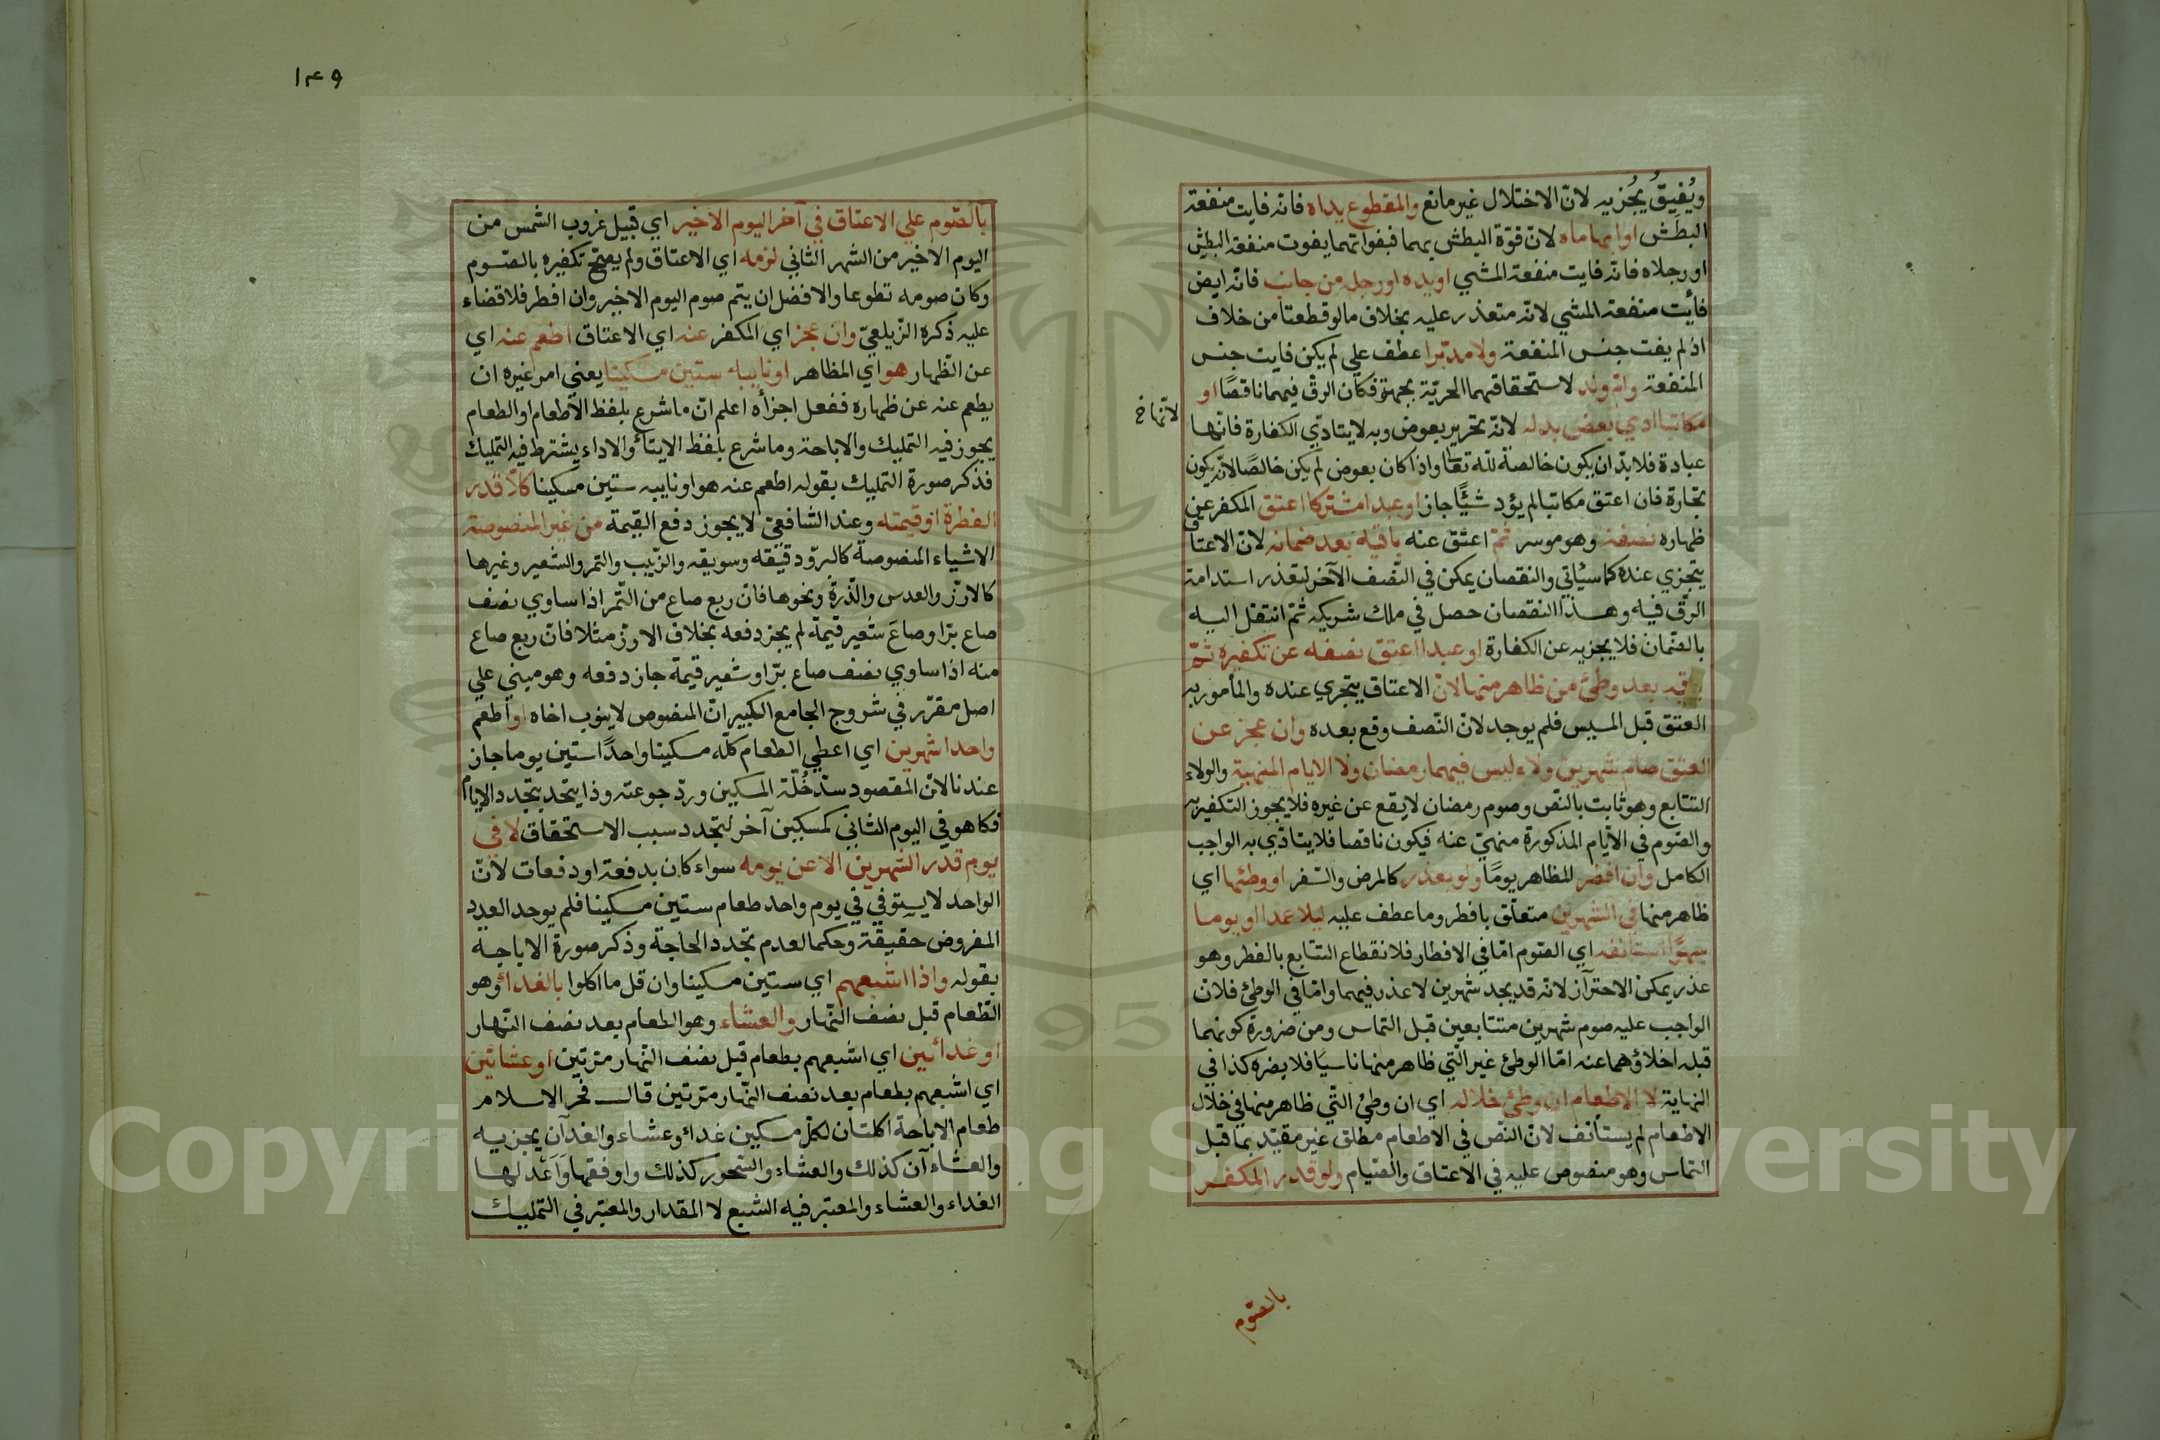 ويُفيقُ يُجزيه لانّ الاختلال غير مانع والمقطوع يداه فانه فايت منفعة
البطش او ابهاماه لانّ قوّة البطش بهما فبفواتهما يفوت منفعة البطش
او رجلاه فانّه فايت منفعة المشي او يده او رجله من جانب فانّه ايض
فائت منفعة المشي لانّه متعذر عليه بخلاف ما لو قطعتا من خلاف
اذ لم يفت جنس المنفعة ولا مدبّرا عطف علي لم يكن فايت جنس
المنفعة وامّ ولد لاستحقاقهما الحريّة بجهة فكان الرقّ فيهما ناقصًا او
مكاتبا ادي بعض بدله لانّه تحرير بعوض وبه لا يتادّي الكفارة فانّها
لانّها خ
عبادة فلا بدّ ان يكون خالصة لله تعا واذا كان بعوض لم يكن خالصًا لانّه يكون
تجارة فان اعتق مكاتبا لم يؤد شيئًا جاز او عبدا مشتركا اعتق المكفر عن
ظهاره نصفه وهو موسر ثمّ اعتق عنه باقيه بعد ضمانه لان الاعتاق
يتجزي عنده كما سياتي والنقصان يمكن في النّصف الآخر لتعذر استدامة
الرقّ فيه وهذا النقصان حصل في ملك شريكه ثمّ انتقل اليه
بالضّمان فلا يجزيه عن الكفارة او عبدا اعتق نصفه عن تكفيره ثمّ
باقيه بعد وطئ من ظاهر منها لانّ الاعتاق يتجزي عنده والمأمور به
العتق قبل المسيس فلم يوجد لانّ النّصف وقع بعده وان عجز عن
العتق صام شهرين ولاء ليس فيهما رمضان ولا الايام المنهيّة والولاء
التتابع وهو ثابت بالنّص وصوم رمضان لا يقع عن غيره فلا يجوز التكفير به
والصّوم في الايّام المذكورة منهيّ عنه فيكون ناقصا فلا يتادّي به الواجب
الكامل وان افطر المظاهر يومًا ولو بعذر كالمرض والسّفر او وطئها اي
ظاهر منها في الشهرين متعلّق بافطر وما عطف عليه ليلا عمدا او يوما
سهوًا استانفه اي الصّوم امّا في الافطار فلانقطاع التتابع بالفطر وهو
عذر يمكن الاحتراز لانّه قد يجد شهرين لا عذر فيهما وامّا في الوطئ فلانّ
الواجب عليه صوم شهرين متتابعين قبل التماس ومن ضرورة كونهما
قبله اخلاؤهما عنه امّا الوطئ غير الّتي ظاهر منها ناسيًا فلا يضره كذا في
النهاية لا الاطعام ان وطئ خلاله اي ان وطئ التّي ظاهر منها في خلال
الاطعام لم يستأنف لانّ النّص في الاطعام مطلق غير مقيّد بما قبل
التماس وهو منصوص عليه في الاعتاق والصّيام ولو قدر المكفر
بالصّوم
١٤٩
بالصّوم علي الاعتاق في آخر اليوم الاخير اي قبيل غروب الشمس من
اليوم الاخير من الشهر الثاني لزمه اي الاعتاق ولم يصحّ تكفيره بالصّوم
وكان صومه تطوعا والافضل ان يتم صوم اليوم الاخير وان افطر فلا قضاء
عليه ذكره الزّيلعيّ وان عجز اي المكفر عنه اي الاعتاق اطعم عنه اي
عن الظّهار هو اي المظاهر او نايبه ستين مسكينا يعني امر غيره ان
يطعم عنه عن ظهاره ففعل اجزأه اعلم انّ ما شرع بلفظ الاطعام او الطعام
يجوز فيه التمليك والاباحة وما شرع بلفظ الايتاء والاداء يشترط فيه التمليك
فذكر صورة التمليك بقوله اطعم عنه هو او نايبه ستين مسكينا كلّا قدر
الفطرة او قيمته وعند الشافعيّ لا يجوز دفع القيمة من غير المنصوصة
الاشياء المنصوصة كالبر ودقيقه وسويقه والزّبيب والتمر والشعير وغيرها
كالارز والعدس والذّرة ونحوها فان ربع صاع من التّمر اذا ساوي نصف
صاع برّ او صاعَ شعير قيمة لم يجز دفعه بخلاف الارز مثلا فان ربع صاع
منه اذا ساوي نصف صاع برّ او شعير قيمة جاز دفعه وهو مبني علي
اصل مقرّر في شروح الجامع الكبير انّ المنصوص لا ينوب اخاه او اطعم
واحدا شهرين اي اعطي الطعام كلّه مسكينا واحدًا ستين يوما جاز
عندنا لانّ المقصود سدّ خُلّة المسكين وردّ جوعته وذا يتجدد بتجدد الايام
فكا هو في اليوم الثاني كمسكين آخر لتجدد سبب الاستحقاق لا في
يوم قدر الشهرين الا عن يومه سواء كان بدفعة او دفعات لانّ
الواحد لا يستوفي في يوم واحد طعام ستين مسكينا فلم يوجد العدد
المفروض حقيقة وحكما لعدم تجدد الحاجة وذكر صورة الاباحة
بقوله واذا اشبعهم اي ستين مسكينا وان قل ما اكلوا بالغداء وهو
الطّعام قبل نصف النّهار والعشاء وهو الطعام بعد نصف النّهار
او غدائين اي اشبعهم بطعام قبل نصف النّهار مرّتين او عشائين
اي اشبعهم بطعام بعد نصف النّهار مرّتين قال فخر الاسلام
طعام الاباحة اكلتان لكلّ مسكين غداء وعشاء والغدآن يجزيه
والعشاء آن كذلك والعشاء والسّحور كذلك واوفقها واعدلها
الغداء والعشاء والمعتبر فيه الشبع لا المقدار والمعتبر في التمليك
Copyright © King Saud University